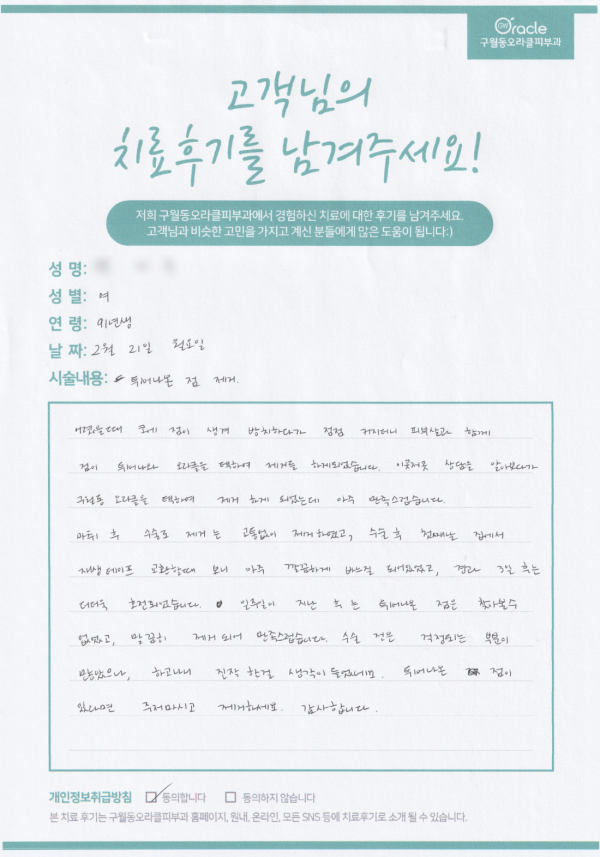 Oracle
구월동오라클피부과
고객님의
치료후기를 남겨주세요!
저희 구월동오라클피부과에서 경험하신 치료에 대한 후기를 남겨주세요.
고객님과 비슷한 고민을 가지고 계신 분들에게 많은 도움이 됩니다:)
성 명:
성 별: 여
연 령: 91년생
날 짜: 2월 21일 월요일
시술내용: 튀어나온 점 제거.
어렸을때 코에 점이 생겨 방치하다가 점점 커지더니 피부살과 함께
점이 튀어나와 오라클을 택하여 제거를 하게되었습니다. 이곳저곳 상담을 알아보다가
구월동 오라클을 택하여 제거 하게 되었는데 아주 만족스럽습니다.
마취 후 수술로 제거 는 고통없이 제거하였고, 수술 후 첫째날 집에서
재생 테이프 교환할때 보니 아주 깔끔하게 바느질 되어있었고, 경과 3일 후는
더더욱 호전되었습니다. 일주일이 지난 후 는 튀어나온 점은 찾아볼수
없었고, 말끔히 제거 되어 만족스럽습니다. 수술 전은 걱정되는 부분이
많았으나, 하고나니 진작 할걸 생각이 들었네요. 튀어나온 점이
있다면 주저마시고 제거하세요. 감사합니다.
개인정보취급방침 동의합니다 동의하지 않습니다
본 치료 후기는 구월동오라클피부과 홈페이지, 원내, 온라인, 모든 SNS 등에 치료후기로 소개 될 수 있습니다.